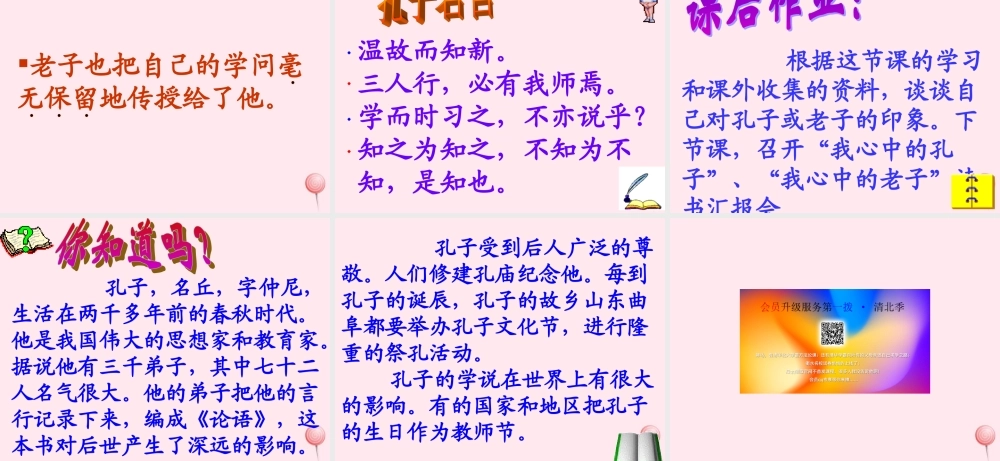 老子也把自己的学问毫
无保留地传授给了他。
孔子名言
温故而知新。
三人行，必有我师焉。
学而时习之，不亦说乎？
知之为知之，不知为不
知，是知也。
课后作业：
根据这节课的学习
和课外收集的资料，谈谈自
己对孔子或老子的印象。下
节课，召开“我心中的孔
子”、“我心中的老子”读
书汇报会
你知道吗？
孔子，名丘，字仲尼，
生活在两千多年前的春秋时代。
他是我国伟大的思想家和教育家。
据说他有三千弟子，其中七十二
人名气很大。他的弟子把他的言
行记录下来，编成《论语》，这
本书对后世产生了深远的影响。
孔子受到后人广泛的尊
敬。人们修建孔庙纪念他。每到
孔子的诞辰，孔子的故乡山东曲
阜都要举办孔子文化节，进行隆
重的祭孔活动。
孔子的学说在世界上有很大
的影响。有的国家和地区把孔子
的生日作为教师节。
会员升级服务第一拨 · 清北季